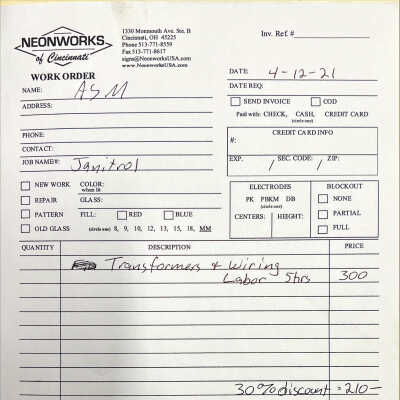 NEONWORKS
of Cincinnati
1330 Monmouth Ave. Ste. B
Cincinnati, OH 45225
Phone 513-771-8559
Fax 513-771-8617
signs@NeonworksUSA.com
www.NeonworksUSA.com
Inv. Ref.#
WORK ORDER
NAME: ASM
ADDRESS:
PHONE:
CONTACT:
JOB NAME#: Janitrol
DATE: 4-12-21
DATE REQ:
SEND INVOICE COD
Paid with: CHECK, CASH, CREDIT CARD
(circle one)
CREDIT CARD INFO
#:
EXP. / SEC. CODE: / ZIP:
NEW WORK COLOR:
when lit
REPAIR GLASS:
PATTERN FILL: RED BLUE
OLD GLASS (circle one) 8, 9, 10, 12, 13, 15, 18, MM
ELECTRODES
PK PBKM DB
(circle one)
CENTERS: HEIGHT:
BLOCKOUT
NONE
PARTIAL
FULL
QUANTITY DESCRIPTION PRICE
Transformers & Wiring
Labor 5hrs 300
30% discount = 210-